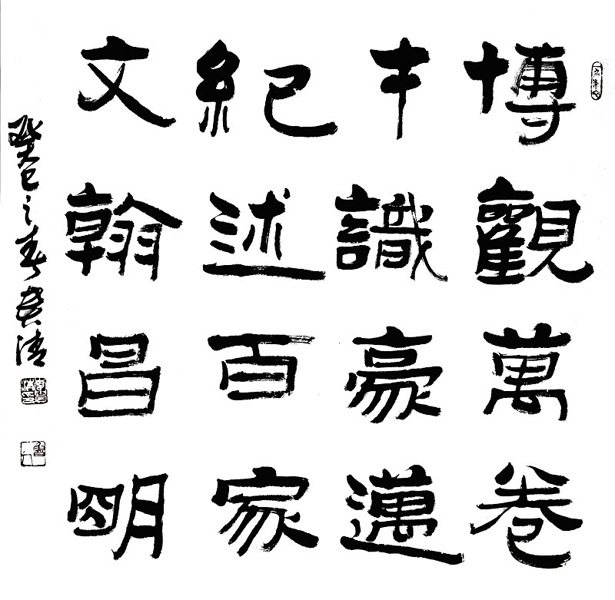 博觀萬卷
才識豪邁
紀述百家
文翰昌明
癸巳之春